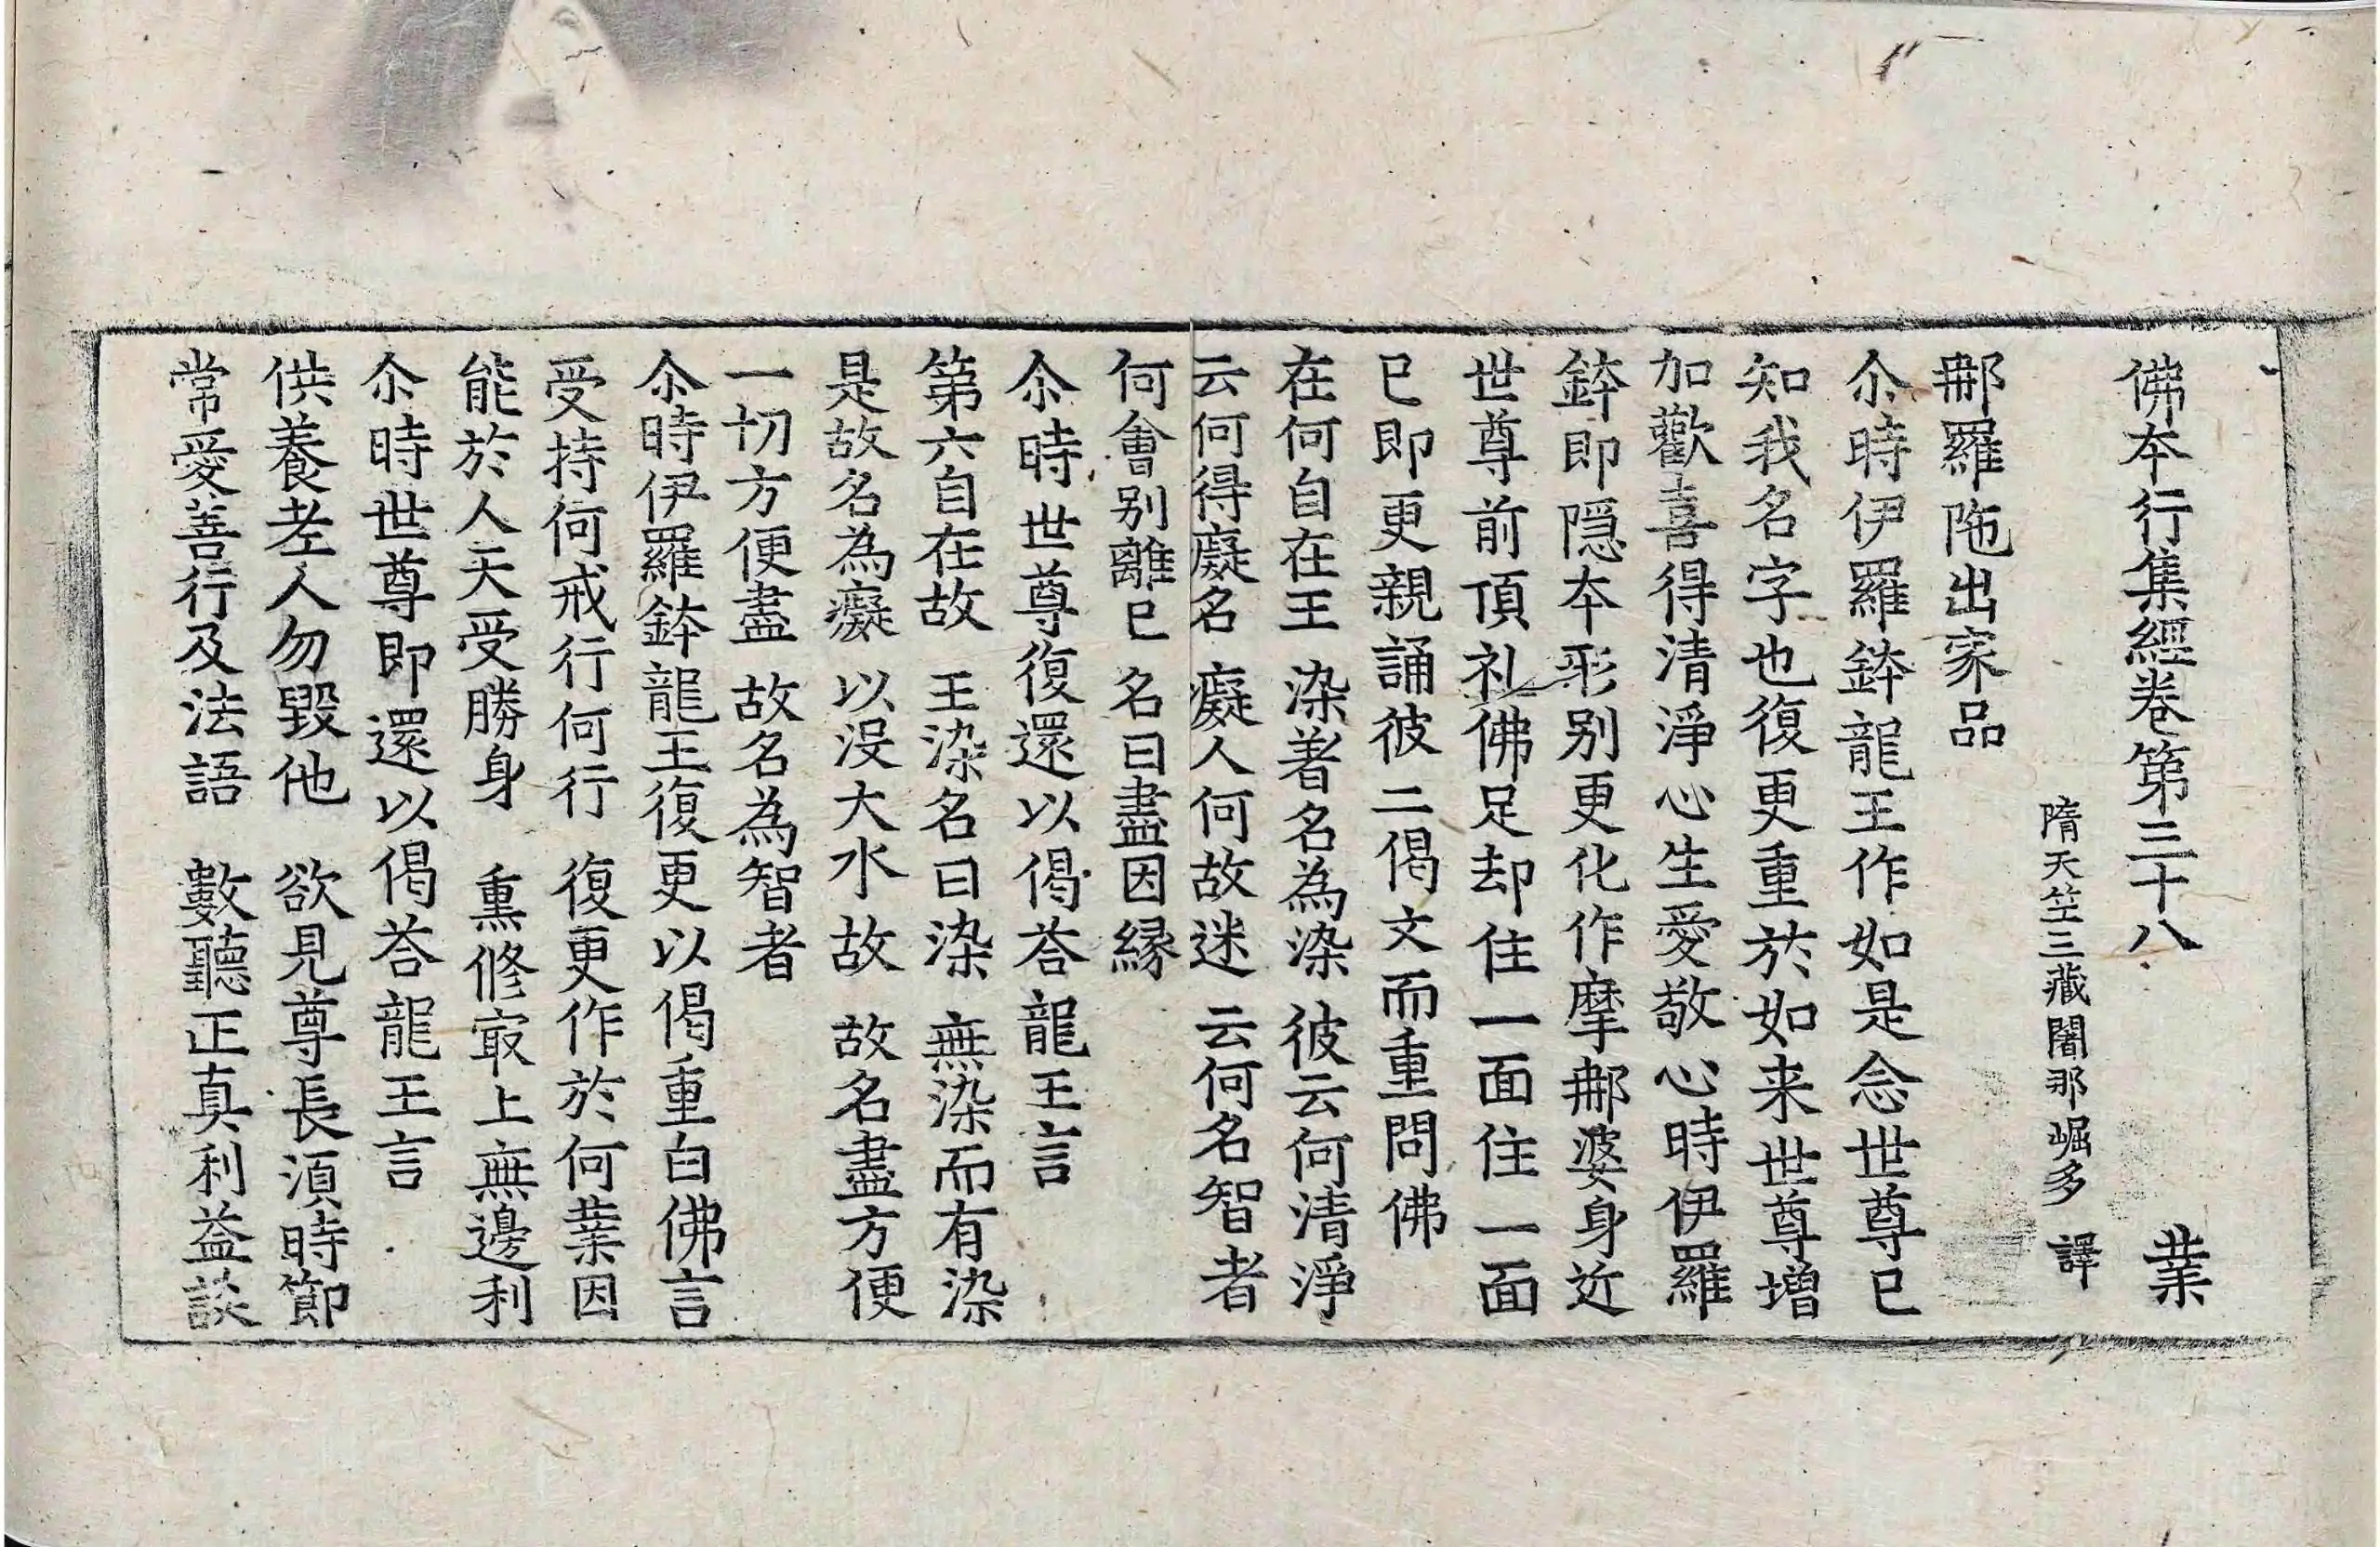 佛本行集經卷第三十八 業
隋天竺三藏闍那崛多 譯
那羅陁出家品
尒時伊羅鉢龍王作如是念世尊已
知我名字也復更重於如来世尊增
加歡喜得清淨心生愛敬心時伊羅
鉢即隱本形别更化作摩那婆身近
世尊前頂礼佛足却住一面住一面
已即更親誦彼二偈文而重問佛
在何自在王 染著名為染 彼云何清淨
云何得癡名 癡人何故迷 云何名智者
何會别離已 名曰盡因縁
尒時世尊復還以偈荅龍王言
第六自在故 王染名曰染 無染而有染
是故名為癡 以没大水故 故名盡方便
一切方便盡 故名為智者
尒時伊羅鉢龍王復更以偈重白佛言
受持何戒行何行 復更作於何業因
能於人天受勝身 熏修㝡上無邊利
尒時世尊即還以偈荅龍王言
供養老人勿毀他 欲見尊長湏時節
常愛善行及法語 數聽正真利益談